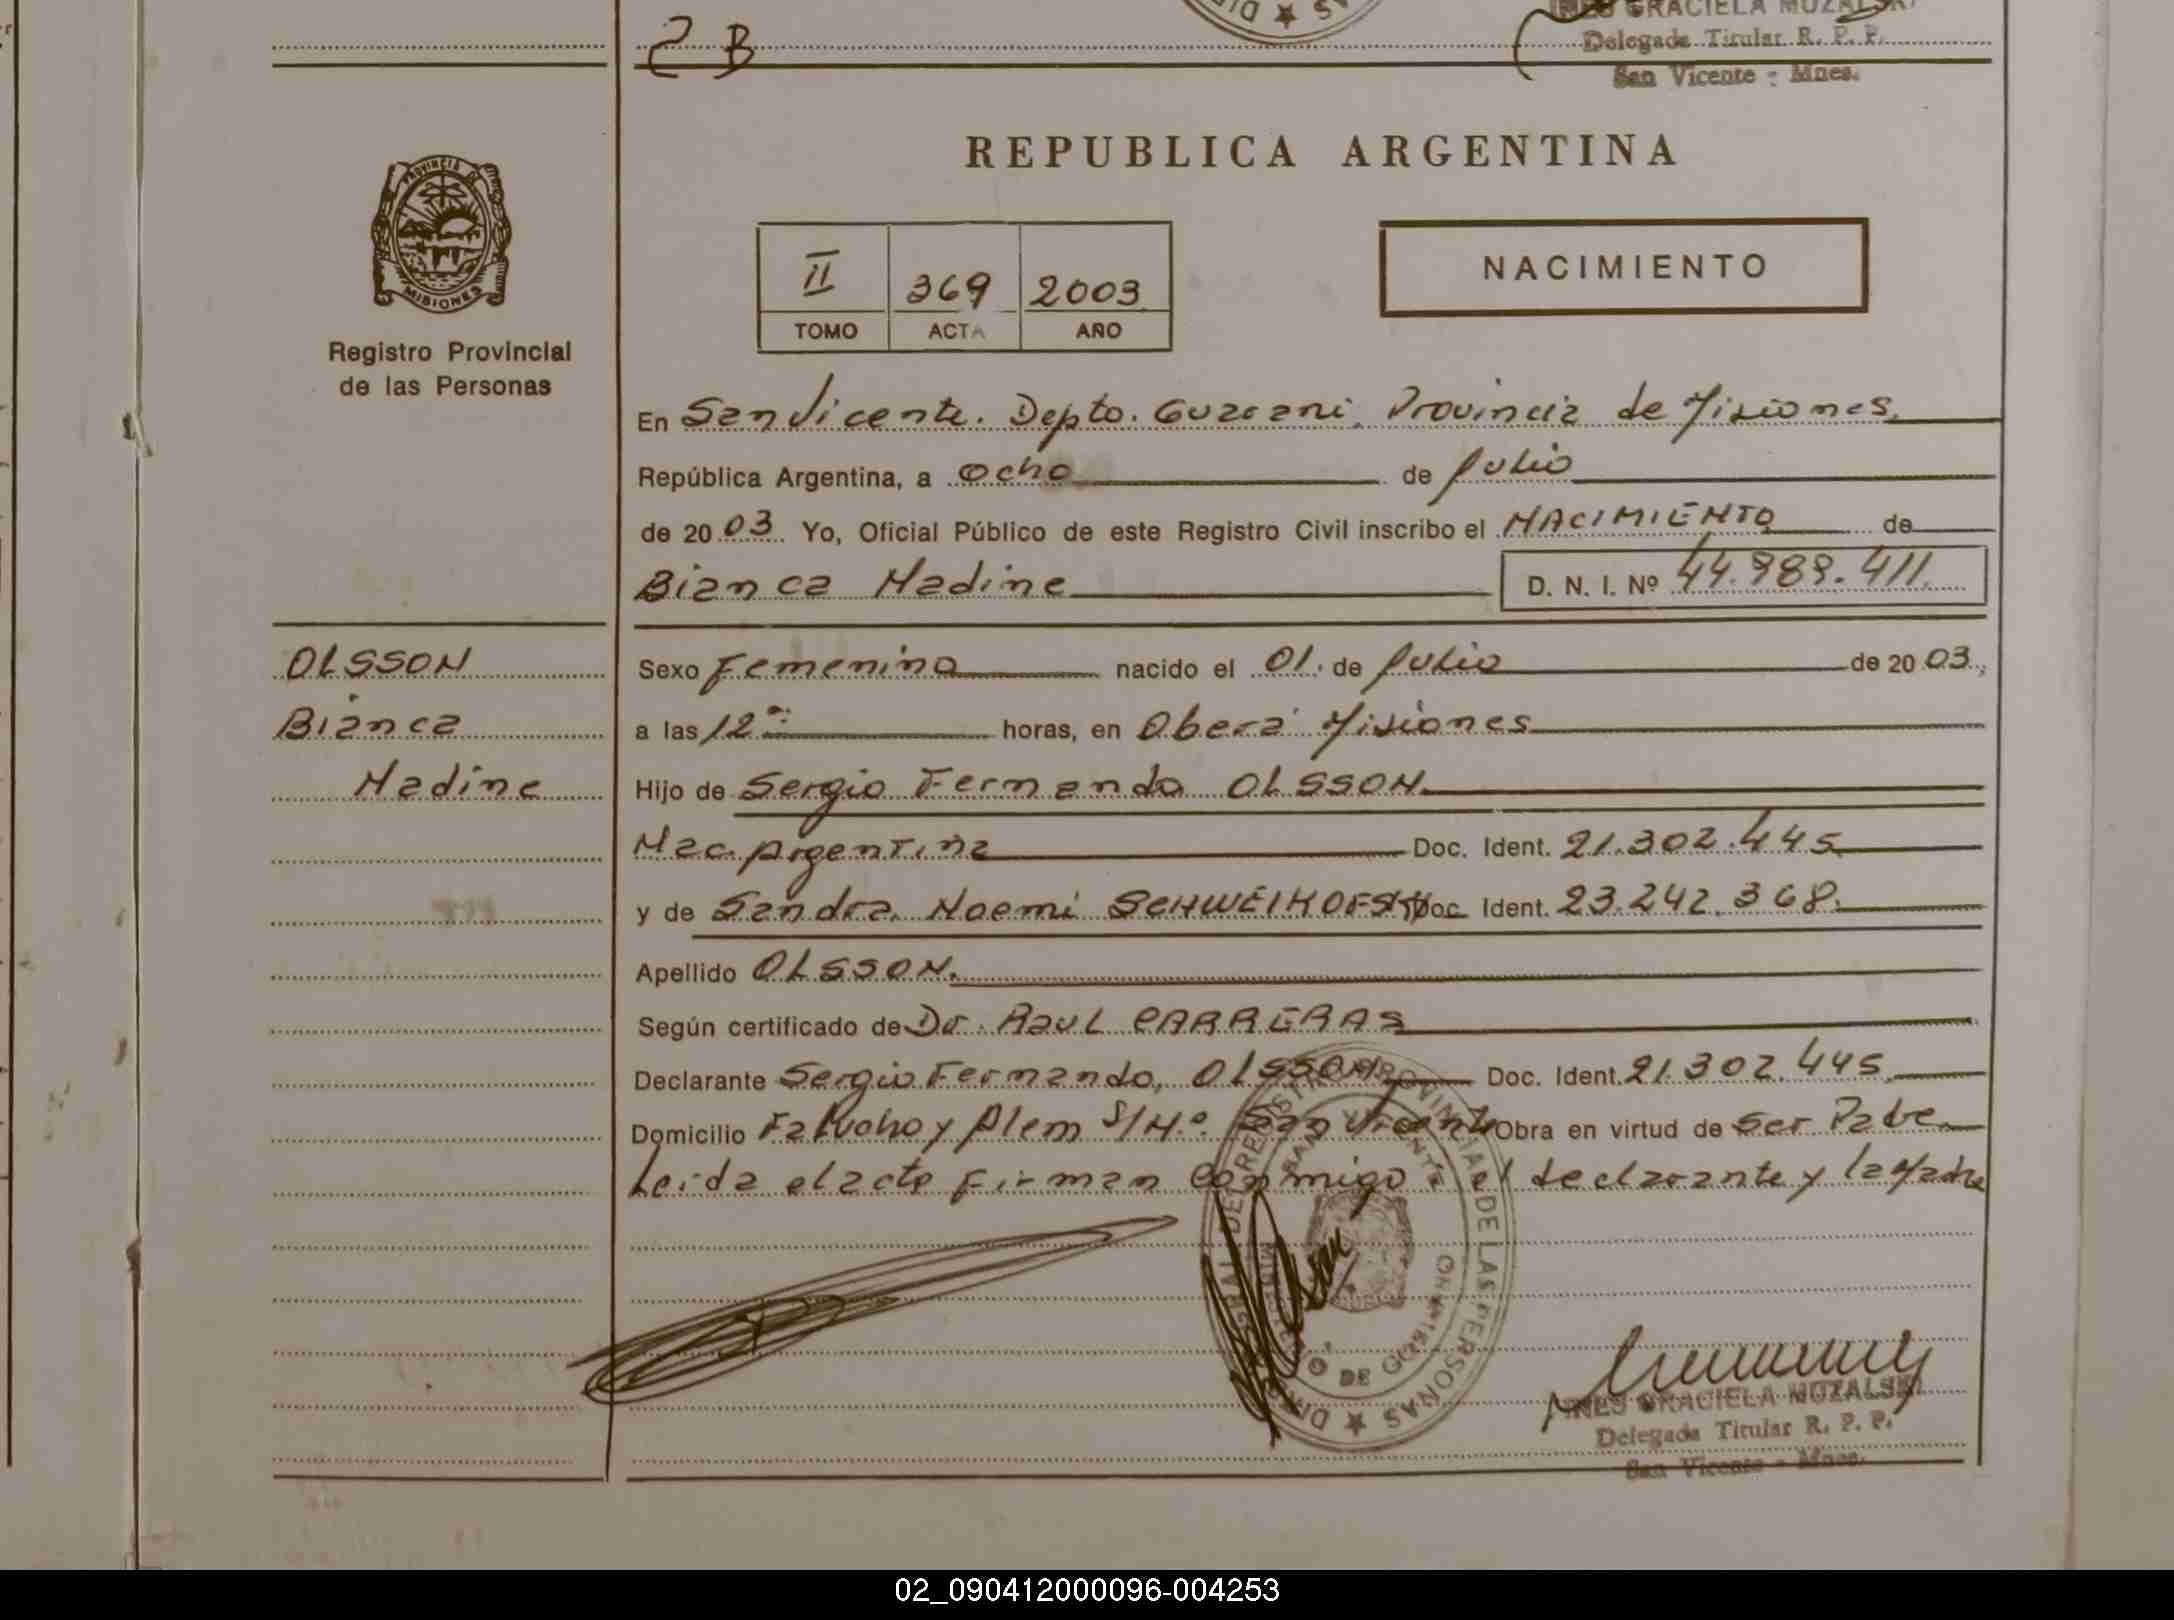 2 B
INES GRACIELA MUZALSKI
Delegada Titular R. P. P.
San Vicente - Mnes.
PROVINCIA DE
MISIONES
Registro Provincial
de las Personas
REPUBLICA ARGENTINA
II 369 2003
TOMO ACTA AÑO
NACIMIENTO
En San Vicente. Depto. Guarani. Provincia de Misiones.
República Argentina, a ocho de Julio
de 2003 Yo, Oficial Público de este Registro Civil inscribo el NACIMIENTO de
Bianca Nadine D. N. I. Nº 44.989.411
OLSSON
Bianca
Nadine
Sexo Femenino nacido el 01. de Julio de 2003,
a las 12 horas, en Oberá Misiones
Hijo de Sergio Fernando OLSSON
Nac. Argentina Doc. Ident. 21.302.445
y de Sandra Noemi Doc. Ident. 23.242.368.
Apellido OLSSON.
Según certificado de Dr. Raul CARRERAS
Declarante Sergio Fernando, OLSSON Doc. Ident. 21.302.445
Domicilio Falucho y Alem S/N.º San Vicente Obra en virtud de ser Padre
Leida el acta firman conmigo el declarante y la Madre
REGISTRO PROVINCIAL DE LAS PERSONAS
SAN VICENTE
MINISTERIO DE GOBIERNO
INES GRACIELA MUZALSKI
Delegada Titular R. P. P.
San Vicente - Mnes.
02_090412000096-004253